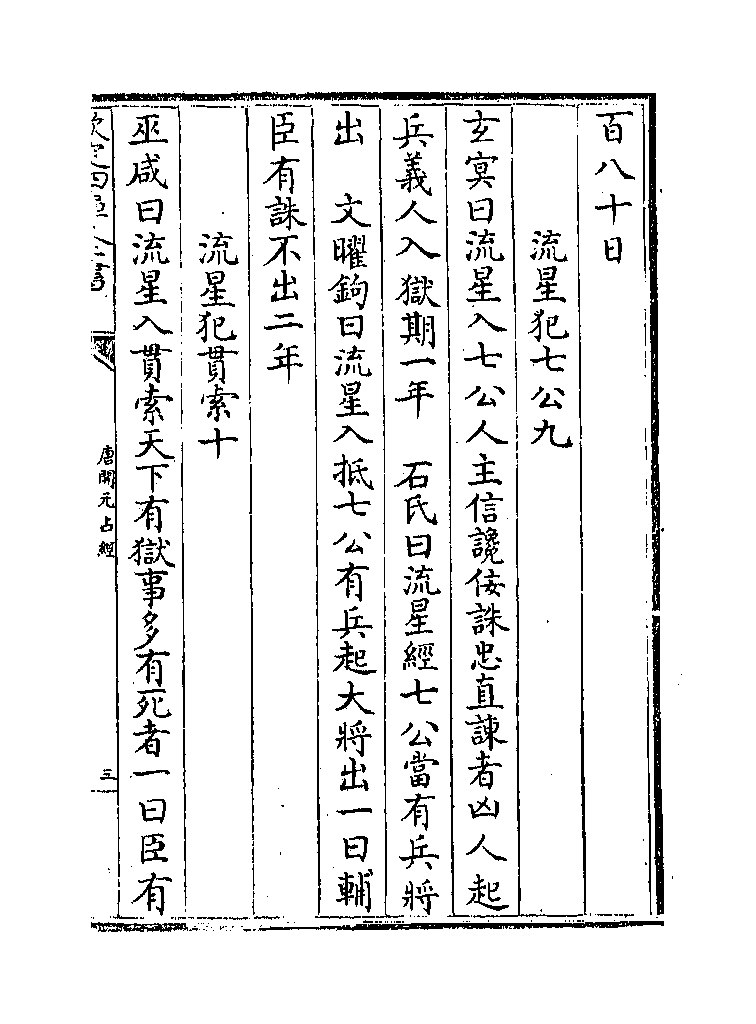 百八十日
流星犯七公九
玄冥曰流星入七公人主信讒佞誅忠直諫者凶人起
兵義人入獄期一年　石氏曰流星經七公當有兵將
出　文曜鉤曰流星入抵七公有兵起大將出一曰輔
臣有誅不出二年
流星犯貫索十
巫咸曰流星入貫索天下有獄事多有死者一曰臣有
欽定四庫全書
唐開元占經
三